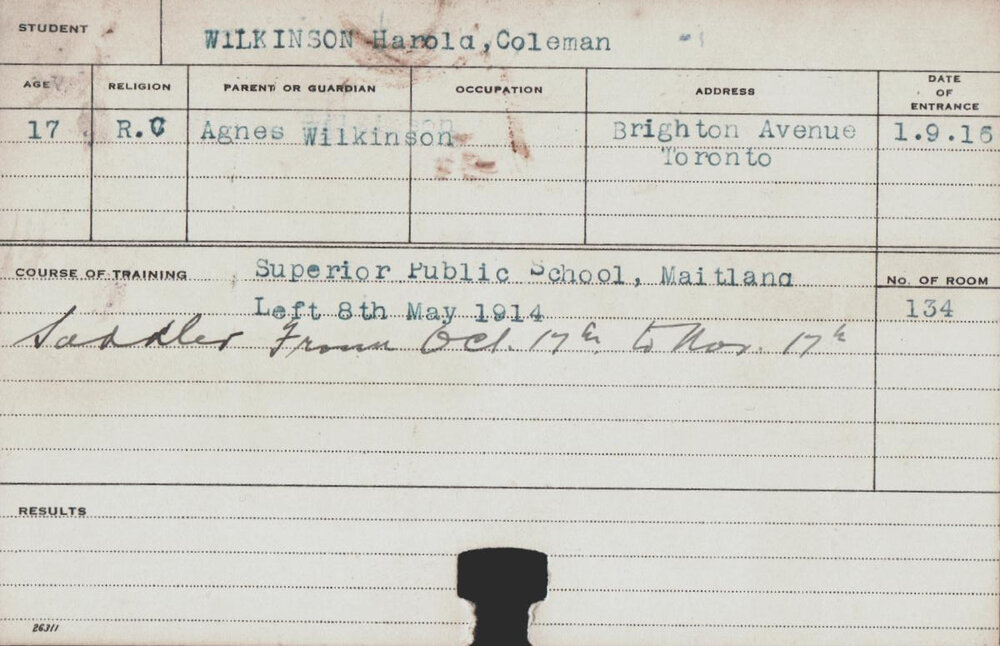 STUDENT WILKINSON Harold, Coleman
AGE RELIGION PARENT OR GUARDIAN OCCUPATION ADDRESS DATE OF ENTRANCE
17 R.C Agnes Wilkinson Brighton Avenue 1.9.16
Toronto
COURSE OF TRAINING Superior Public School, Maitland No. OF ROOM
Left 8th May 1914 134
Saddler From Oct. 17th to Nov. 17th
RESULTS
26311